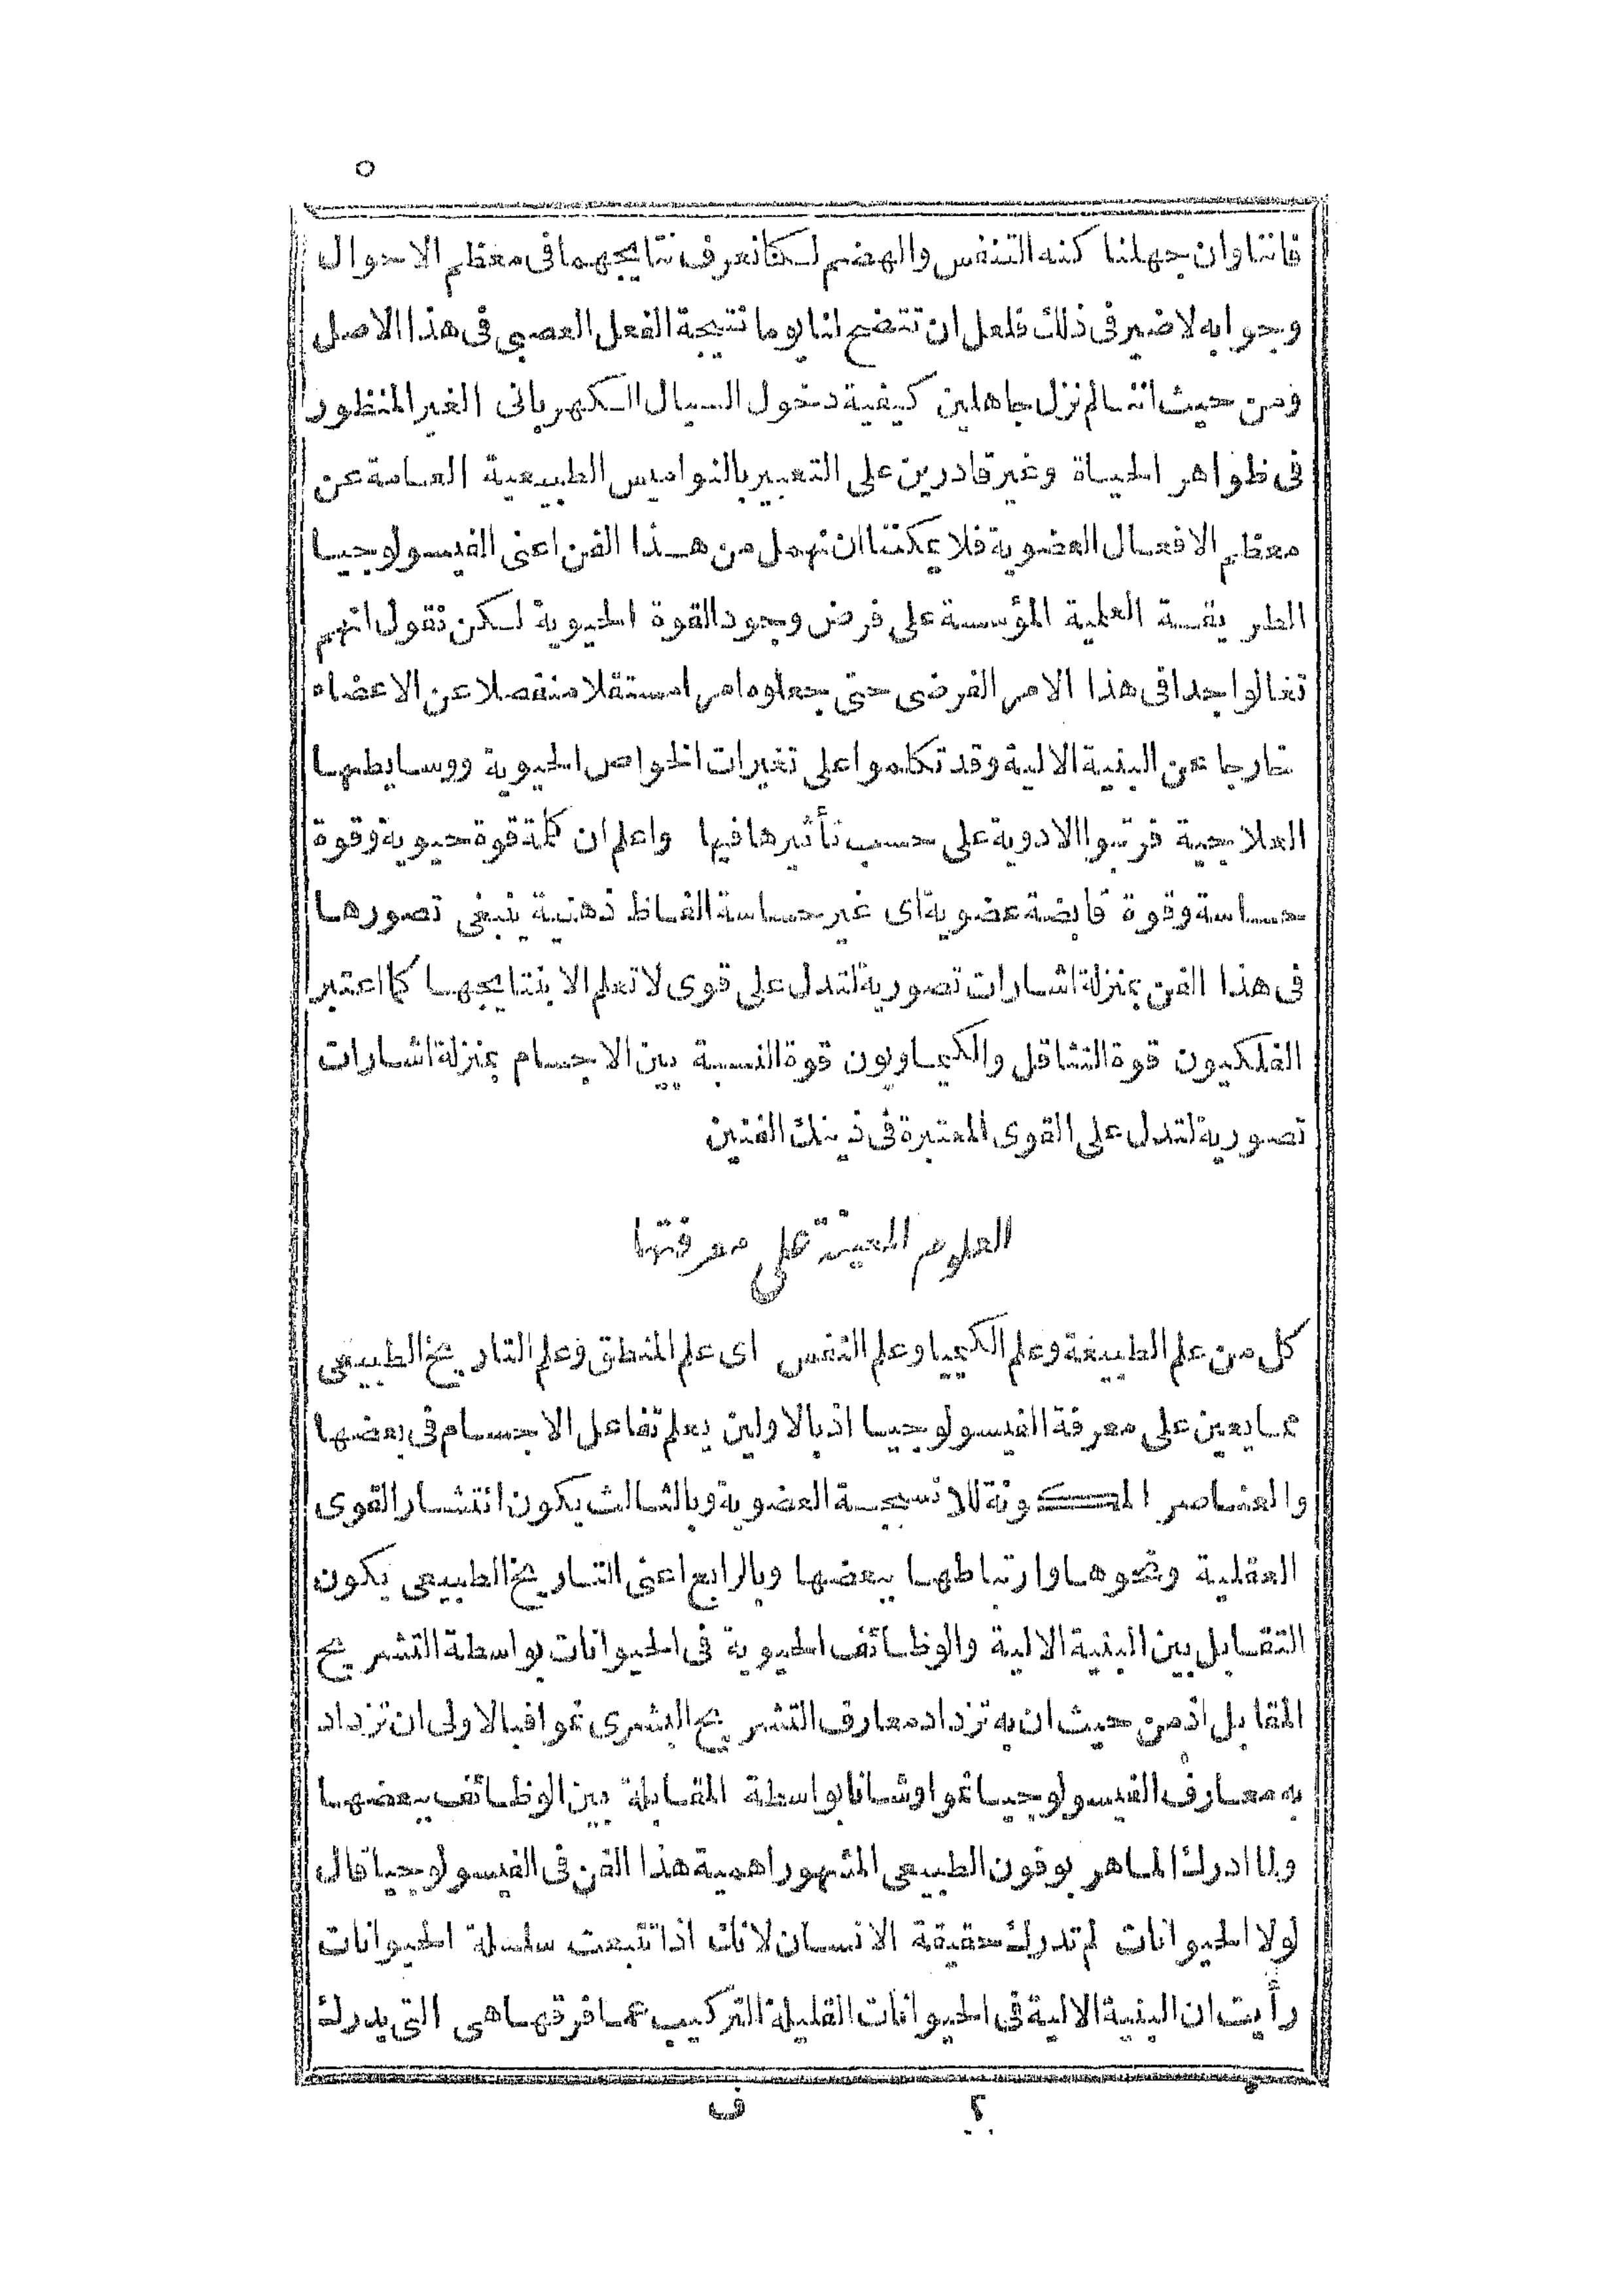 ٥
فاننا وان جهلنا كنه التنفس والهضم لكنا نعرف نتايجهما فى معظم الاحوال
وجوابه لا ضير فى ذلك فلعل ان تتضح لنا يوما نتيجة الفعل العصبى فى هذا الاصل
ومن حيث اننا لم نزل جاهلين كيفية دخول السيال الكهربائى الغير المنظور
فى ظواهر الحياة وغير قادرين على التعبير بالنواميس الطبيعية العامة عن
معظم الافعال العضوية فلا يمكننا ان نهمل من هذا الفن اعنى الفيسولوجيا
الطريقة العلمية المؤسسة على فرض وجود القوة الحيوية لكن نقول انهم
تغالوا جدا فى هذا الامر الفرضى حتى جعلوه امرا مستقلا منفصلا عن الاعضاء
خارجا عن البنية الالية وقد تكلموا على تغيرات الخواص الحيوية ووسايطها
العلاجية فرتبوا الادوية على حسب تأثيرها فيها واعلم ان كلمة قوة حيوية وقوة
حساسة وقوة قابضة عضوية اى غير حساسة الفاظ ذهنية ينبغى تصورها
فى هذا الفن بمنزلة اشارات تصورية لتدل على قوى لا تعلم الا بنتايجها كما اعتبر
الفلكيون قوة التثاقل والكيماويون قوة النسبة بين الاجسام بمنزلة اشارات
تصورية لتدل على القوى المعتبرة فى ذينك الفنين
العلوم المعينة على معرفتها
كل من علم الطبيعة وعلم الكيميا وعلم النفس اى علم المنطق وعلم التاريخ الطبيعى
مما يعين على معرفة الفيسولوجيا اذ بالاولين يعلم تفاعل الاجسام فى بعضها
والعناصر المكونة للانسجة العضوية وبالثالث يكون انتشار القوى
العقلية ونحوها وارتباطها ببعضها وبالرابع اعنى التاريخ الطبيعى يكون
التقابل بين البنية الالية والوظائف الحيوية فى الحيوانات بواسطة التشريح
المقابل اذ من حيث ان به تزداد معارف التشريح البشرى نموا فبالاولى ان تزداد
به معارف الفيسولوجيا نموا وشانا بواسطة المقابلة بين الوظائف ببعضها
ولما ادرك الماهر بوفون الطبيعى المشهور اهمية هذا الفن فى الفيسولوجيا قال
لولا الحيوانات لم تدرك حقيقة الانسان لانك اذا تتبعت سلسلة الحيوانات
رأيت ان البنية الالية فى الحيوانات القليلة التركيب عما فرقها هى التى يدرك
٢ ف